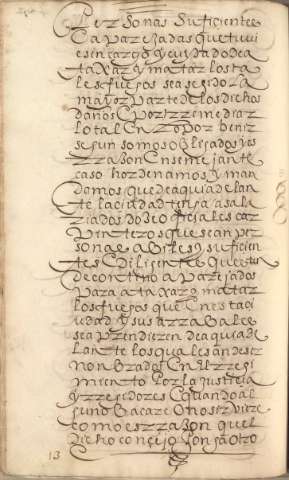 Personas suficientes
e aparejadas que tuvi
esen cargo y cuydado de a
taxar y matar los ta
les fuegos se escusa
mayor parte de los dichos
daños e por ende
lo tal
segun somos obligados y es
rrazon en semejante
caso hordenamos y man
damos que de aqui adelan
te la ciudad tenga asala
riados doze oficiales car
pinteros que sean per
sonas abiles y suficien
tes e diligentes que esten
de contino aparejados
para ataxar y matar
los fuegos que en esta ci
udad y sus arrabales
se aprendieren de aqui ade
lante los quales an de ser
nonbrados en el rregi
miento por la justicia
y rregidores e quando al
guno bacare o no sirviere
como es rrazon que el
dicho concejo ponga otro
13